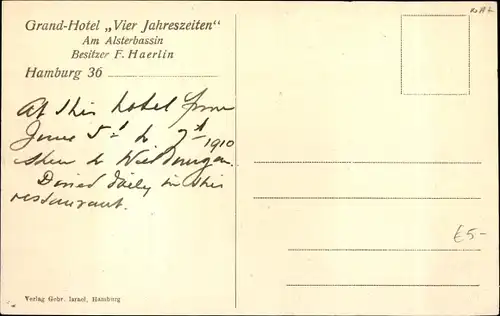 Grand-Hotel „Vier Jahreszeiten"
Am Alsterbassin
Besitzer F. Haerlin
Hamburg 36
At this hotel from
June 5th to 7th 1910
then to Wildungen.
Dined daily in this
restaurant.
£5-
Verlag Gebr. Israel, Hamburg